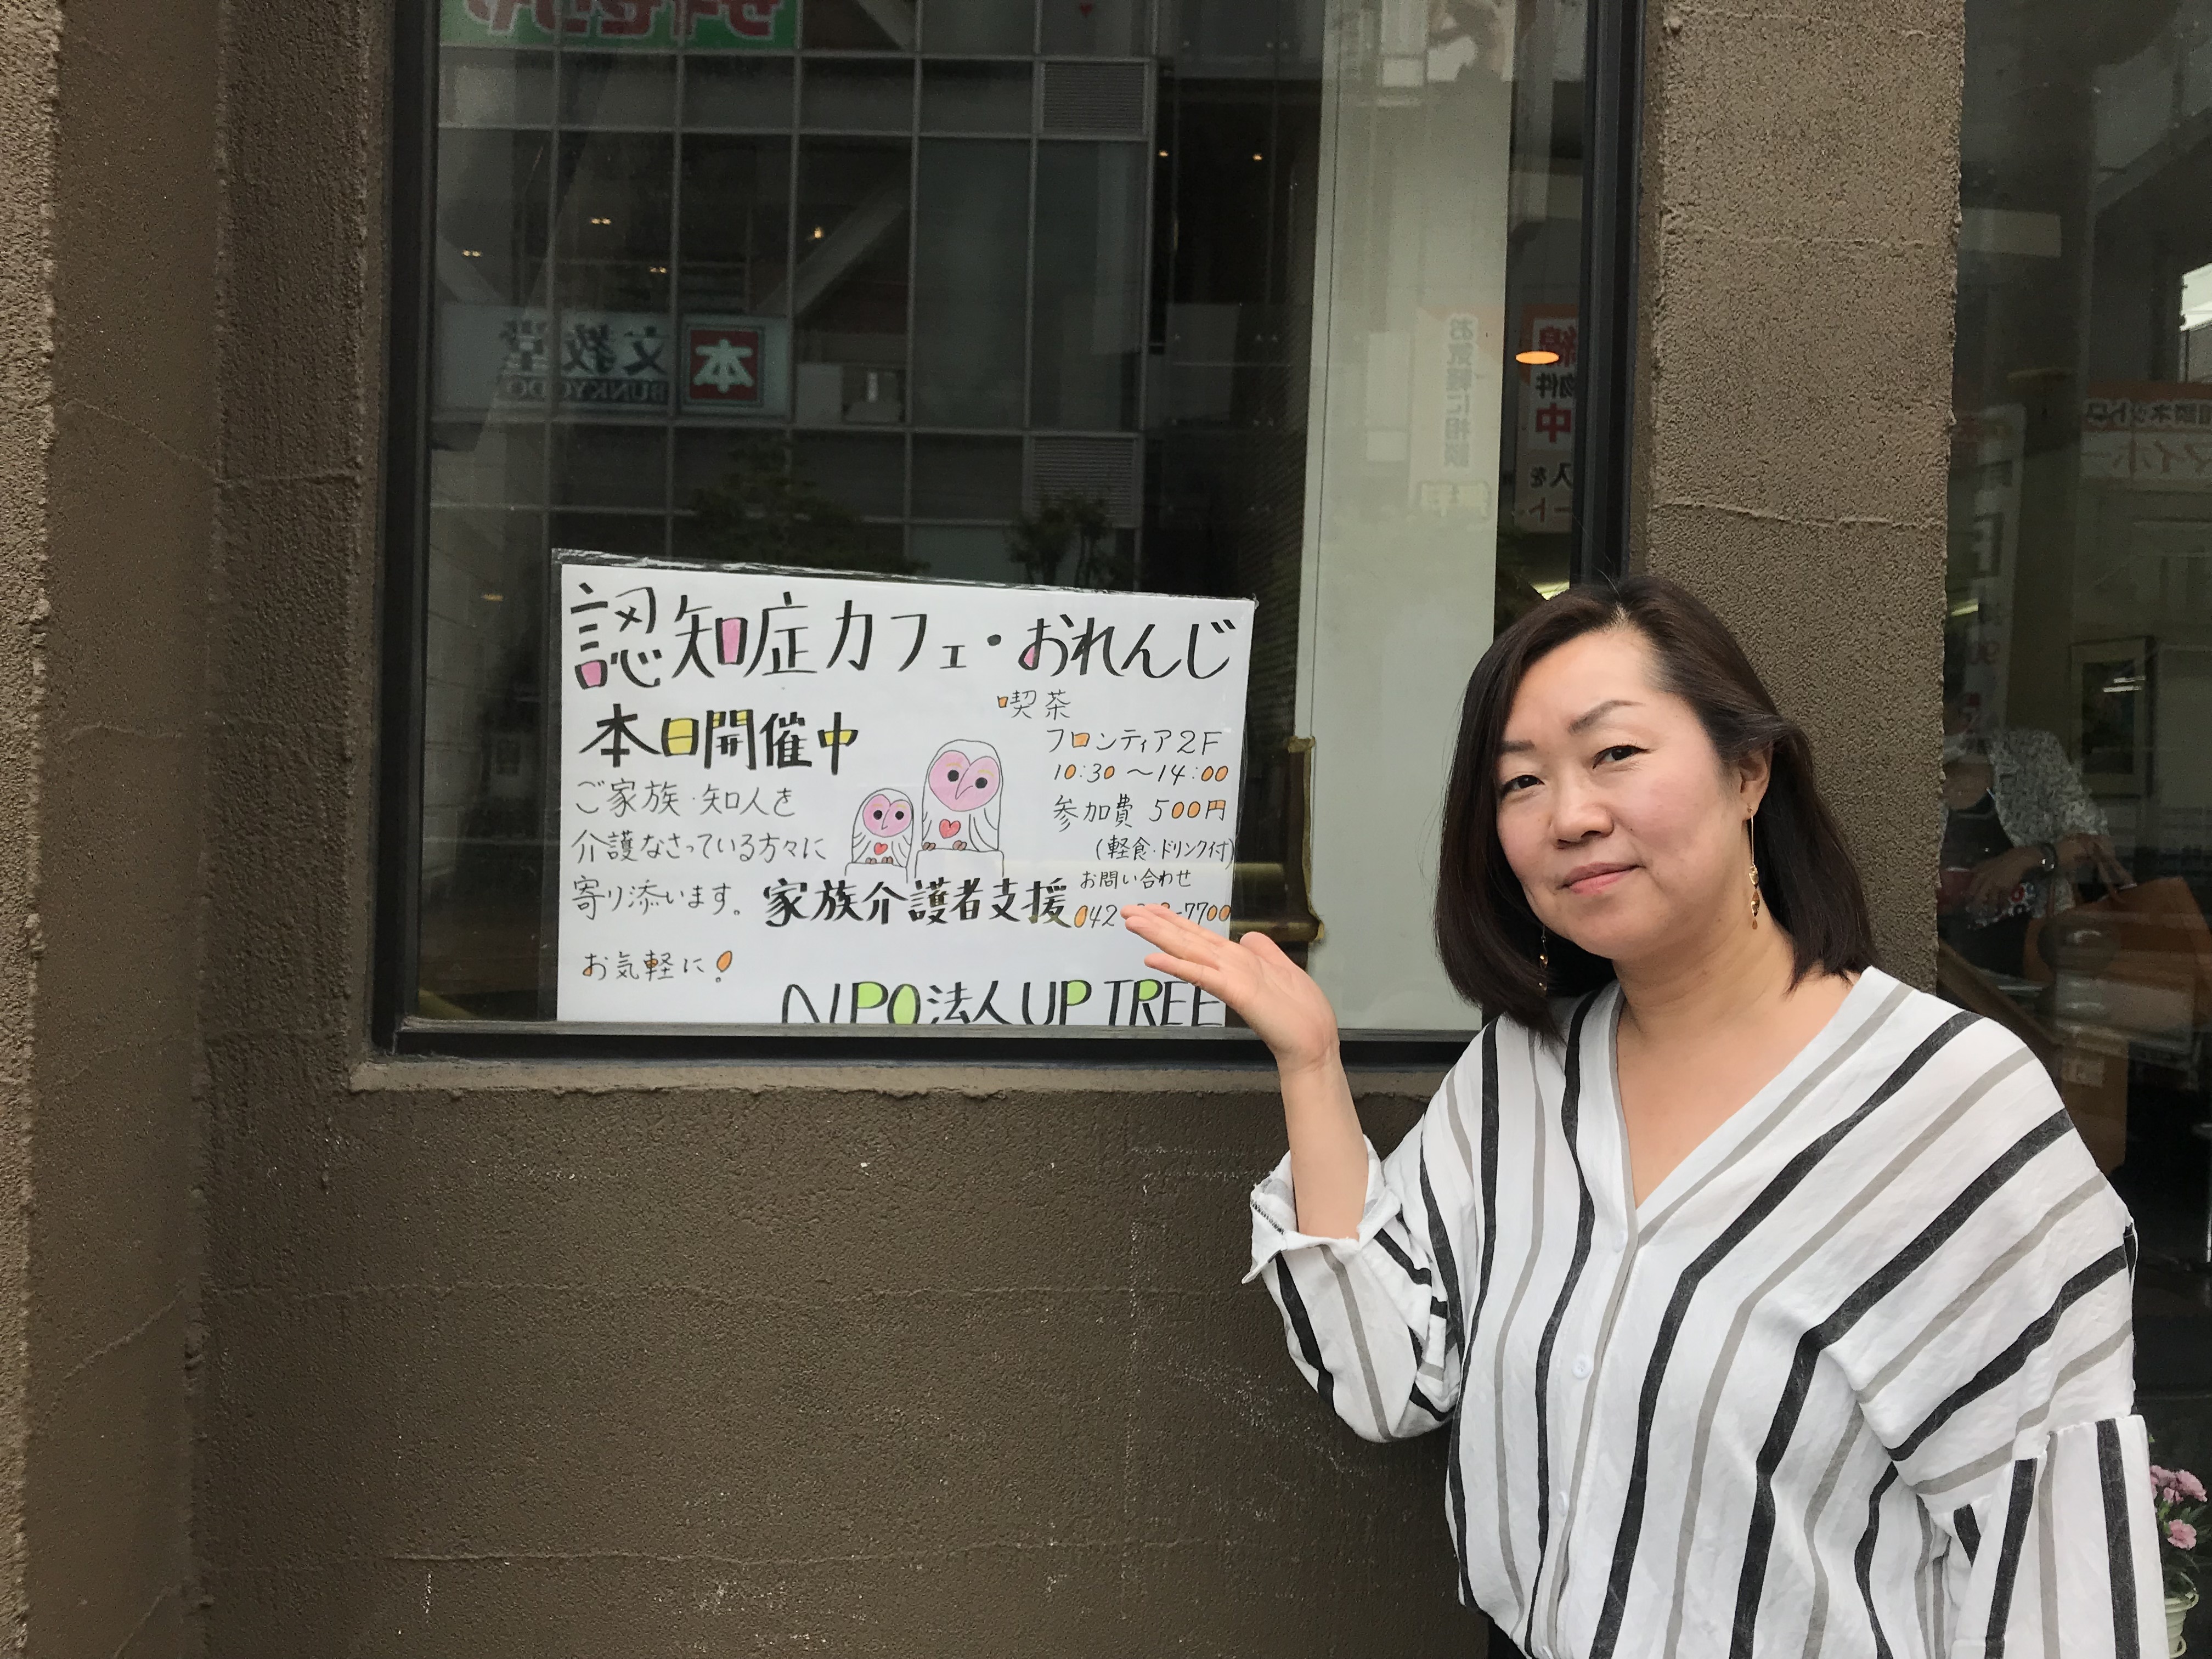 認知症カフェ・おれんじ
本日開催中
喫茶
フロンティア2F
10:30〜14:00
参加費 500円
(軽食・ドリンク付)
ご家族・知人を
介護なさっている方々に
寄り添います。
家族介護者支援
お問い合わせ
042
-7700
お気軽に!
NPO法人 UP TREE
本 文教堂
BUNKYODO
お気軽に相談